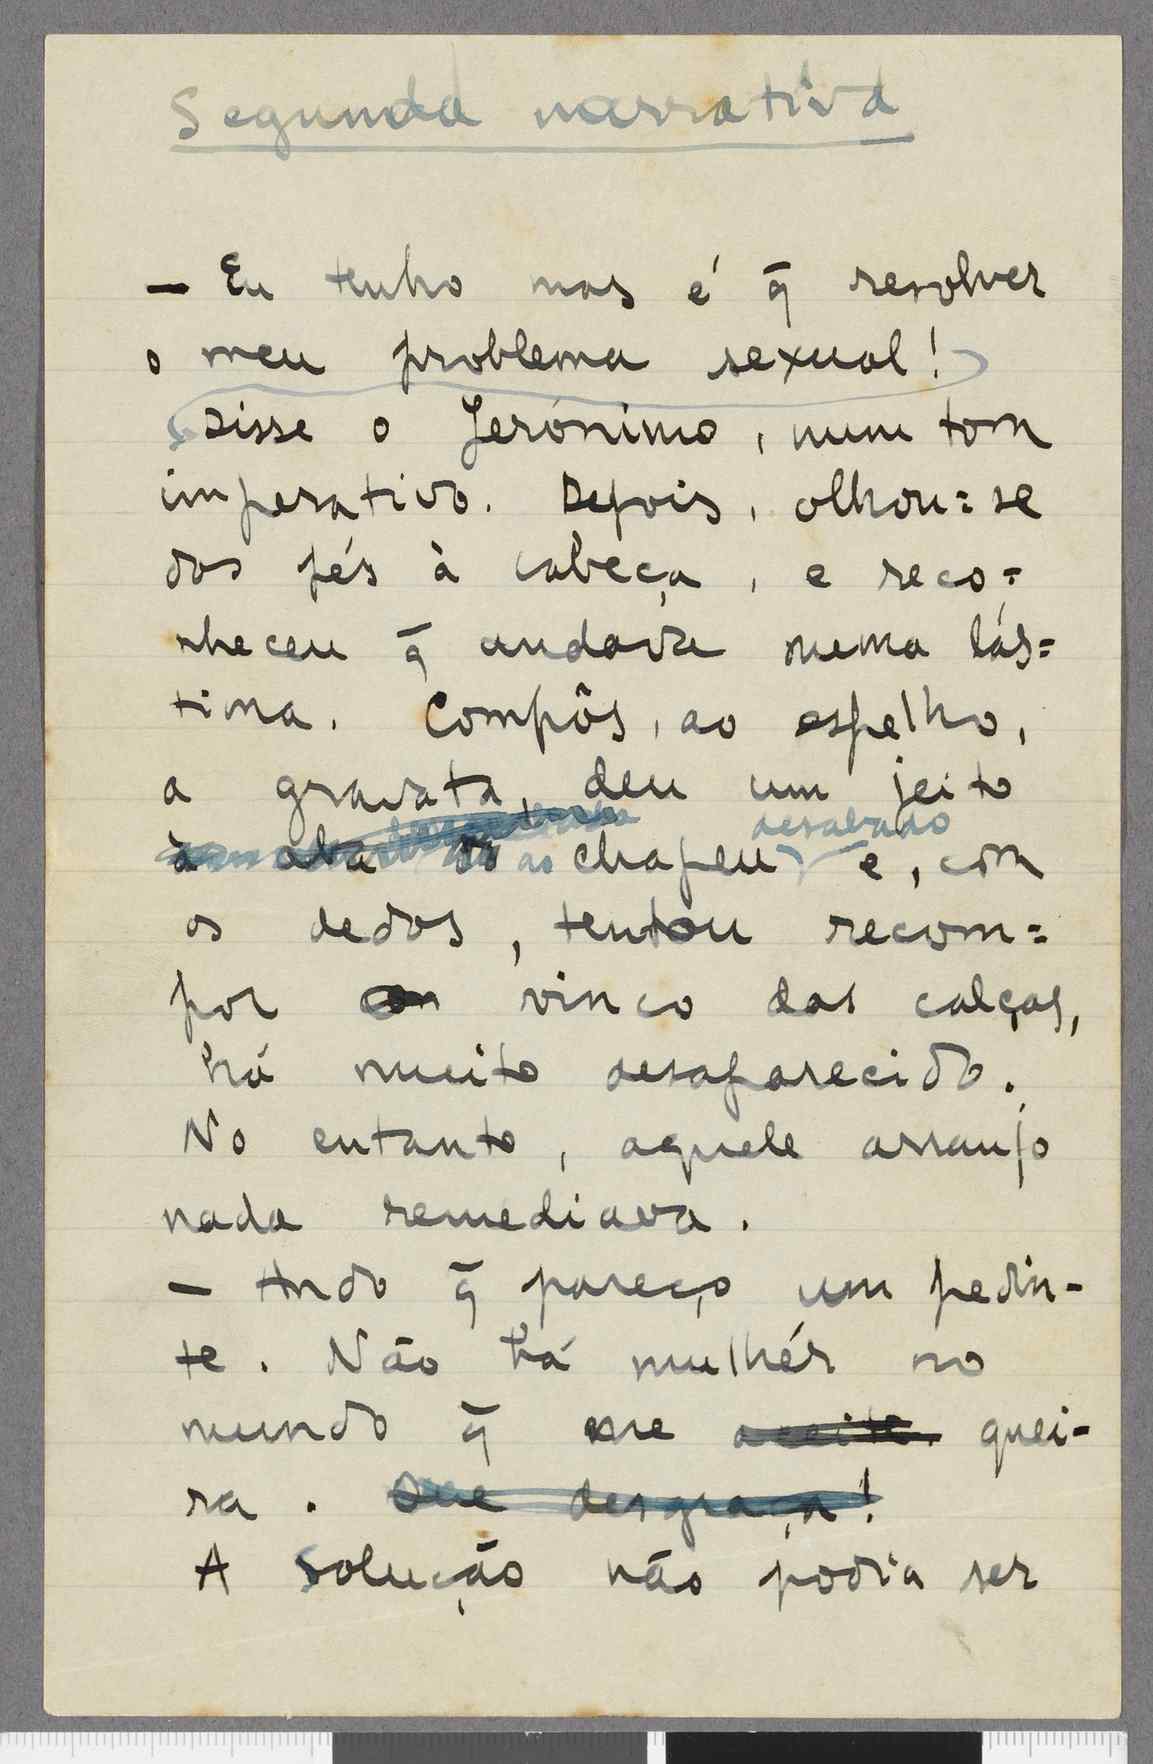 Segunda narrativa
— Eu tenho mas é q̃ resolver
o meu problema sexual!
disse o Jerónimo, num tom
imperativo. Depois, olhou=se
dos pés à cabeça, e reco=
nheceu q̃ andava numa lás=
tima. Compôs, ao espelho,
a gravata, deu um jeito
desabado
à aba do ao chapeu e, com
os dedos, tentou recom=
por o vinco das calças,
há muito desaparecido.
No entanto, aquele arranjo
nada remediava.
— Ando q̃ pareço um pedin-
te. Não há mulhér no
mundo q̃ me aceite quei-
ra. Que desgraça!
A solução não podia ser